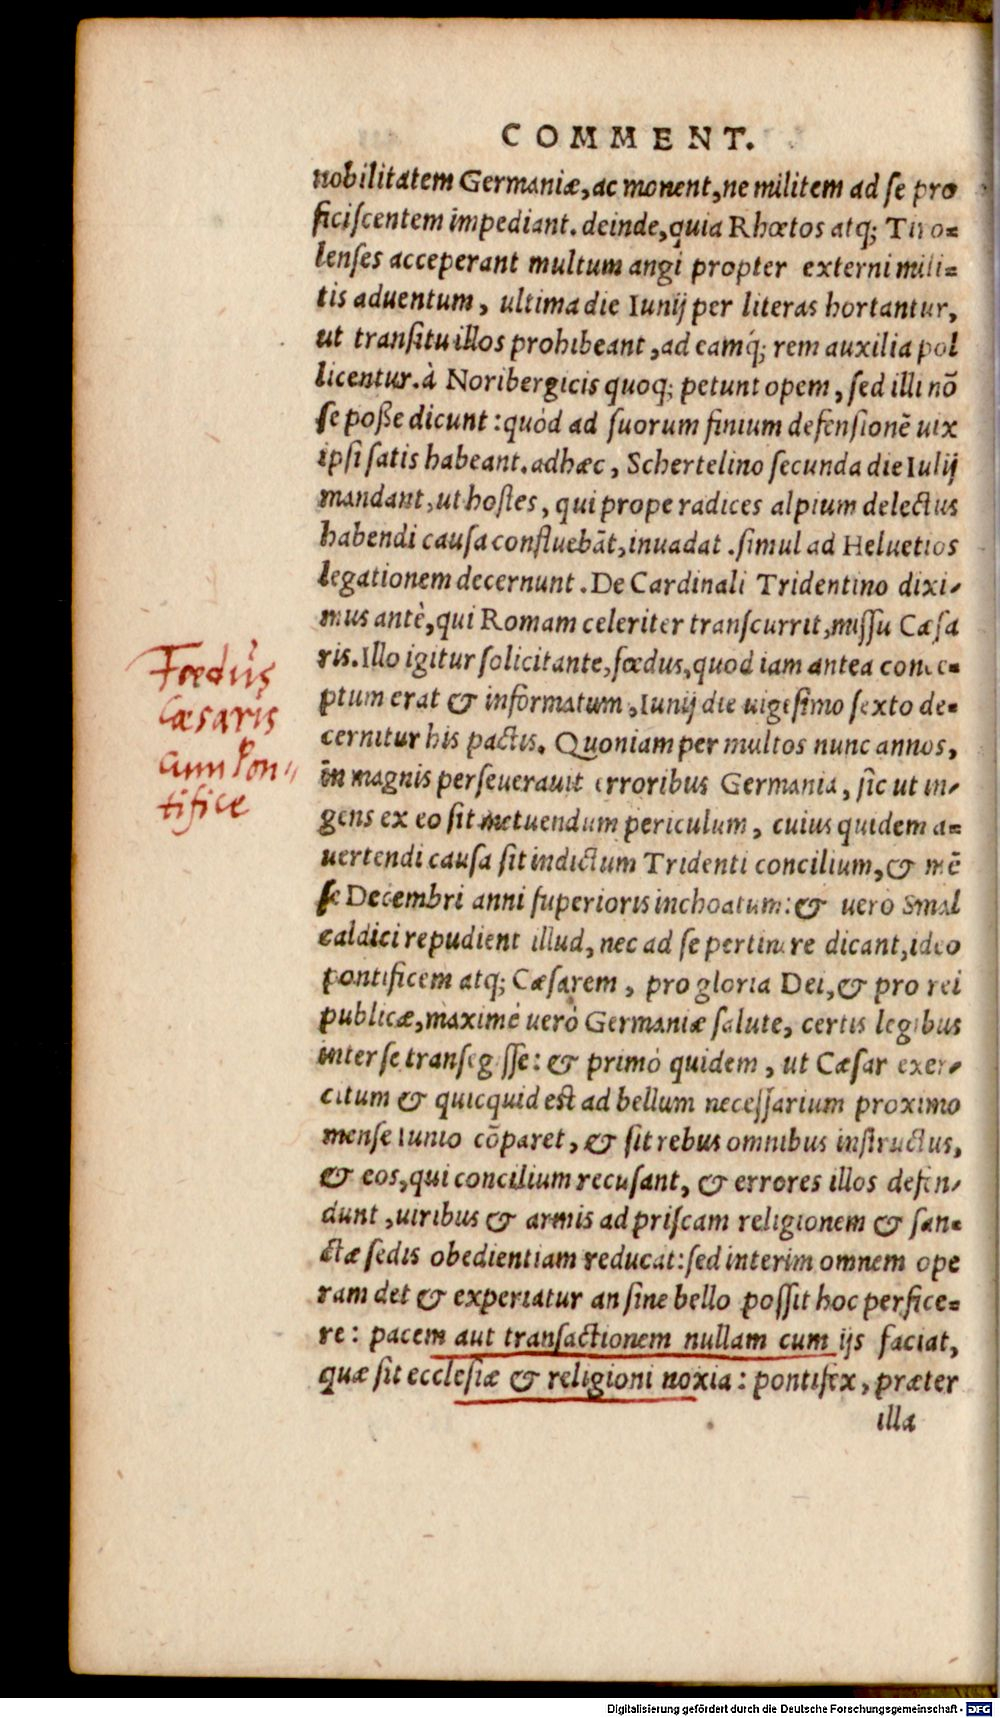 COMMENT.
nobilitatem Germaniæ, ac monent, ne militem ad se pro
ficiscentem impediant. deinde, quia Rhœtos atq; Tiro=
lenses acceperant multum angi propter externi mili=
tis aduentum, ultima die Iunij per literas hortantur,
ut transitu illos prohibeant, ad eamq́; rem auxilia pol
licentur. à Noribergicis quoq; petunt opem, sed illi nõ
se poße dicunt: quòd ad suorum finium defensionẽ uix
ipsi satis habeant. adhæc, Schertelino secunda die Iulij
mandant, ut hostes, qui prope radices alpium delectus
habendi causa confluebãt, inuadat. simul ad Heluetios
legationem decernunt. De Cardinali Tridentino dixi-
mus antè, qui Romam celeriter transcurrit, missu Cæsa
ris. Illo igitur solicitante, fœdus, quod iam antea conce=
ptum erat & informatum, Iunij die uigesimo sexto de=
cernitur his pactis. Quoniam per multos nunc annos,
in magnis perseuerauit erroribus Germania, sic ut in-
gens ex eo sit metuendum periculum, cuius quidem a=
uertendi causa sit indictum Tridenti concilium, & mẽ
se Decembri anni superioris inchoatum: & uerò Smal
caldici repudient illud, nec ad se pertinere dicant, ideo
pontificem atq; Cæsarem, pro gloria Dei, & pro rei
publicæ, maximè uerò Germaniæ salute, certis legibus
inter se transegisse: & primò quidem, ut Cæsar exer-
citum & quicquid est ad bellum necessarium proximo
mense Iunio cõparet, & sit rebus omnibus instructus,
& eos, qui concilium recusant, & errores illos defen-
dunt, uiribus & armis ad priscam religionem & san=
ctæ sedis obedientiam reducat: sed interim omnem ope
ram det & experiatur an sine bello possit hoc perfice=
re: pacem aut transactionem nullam cum ijs faciat,
quæ sit ecclesiæ & religioni noxia: pontifex, præter
illa
Fœdus
Cæsaris
cum Pon=
tifice
Digitalisierung gefördert durch die Deutsche Forschungsgemeinschaft - DFG